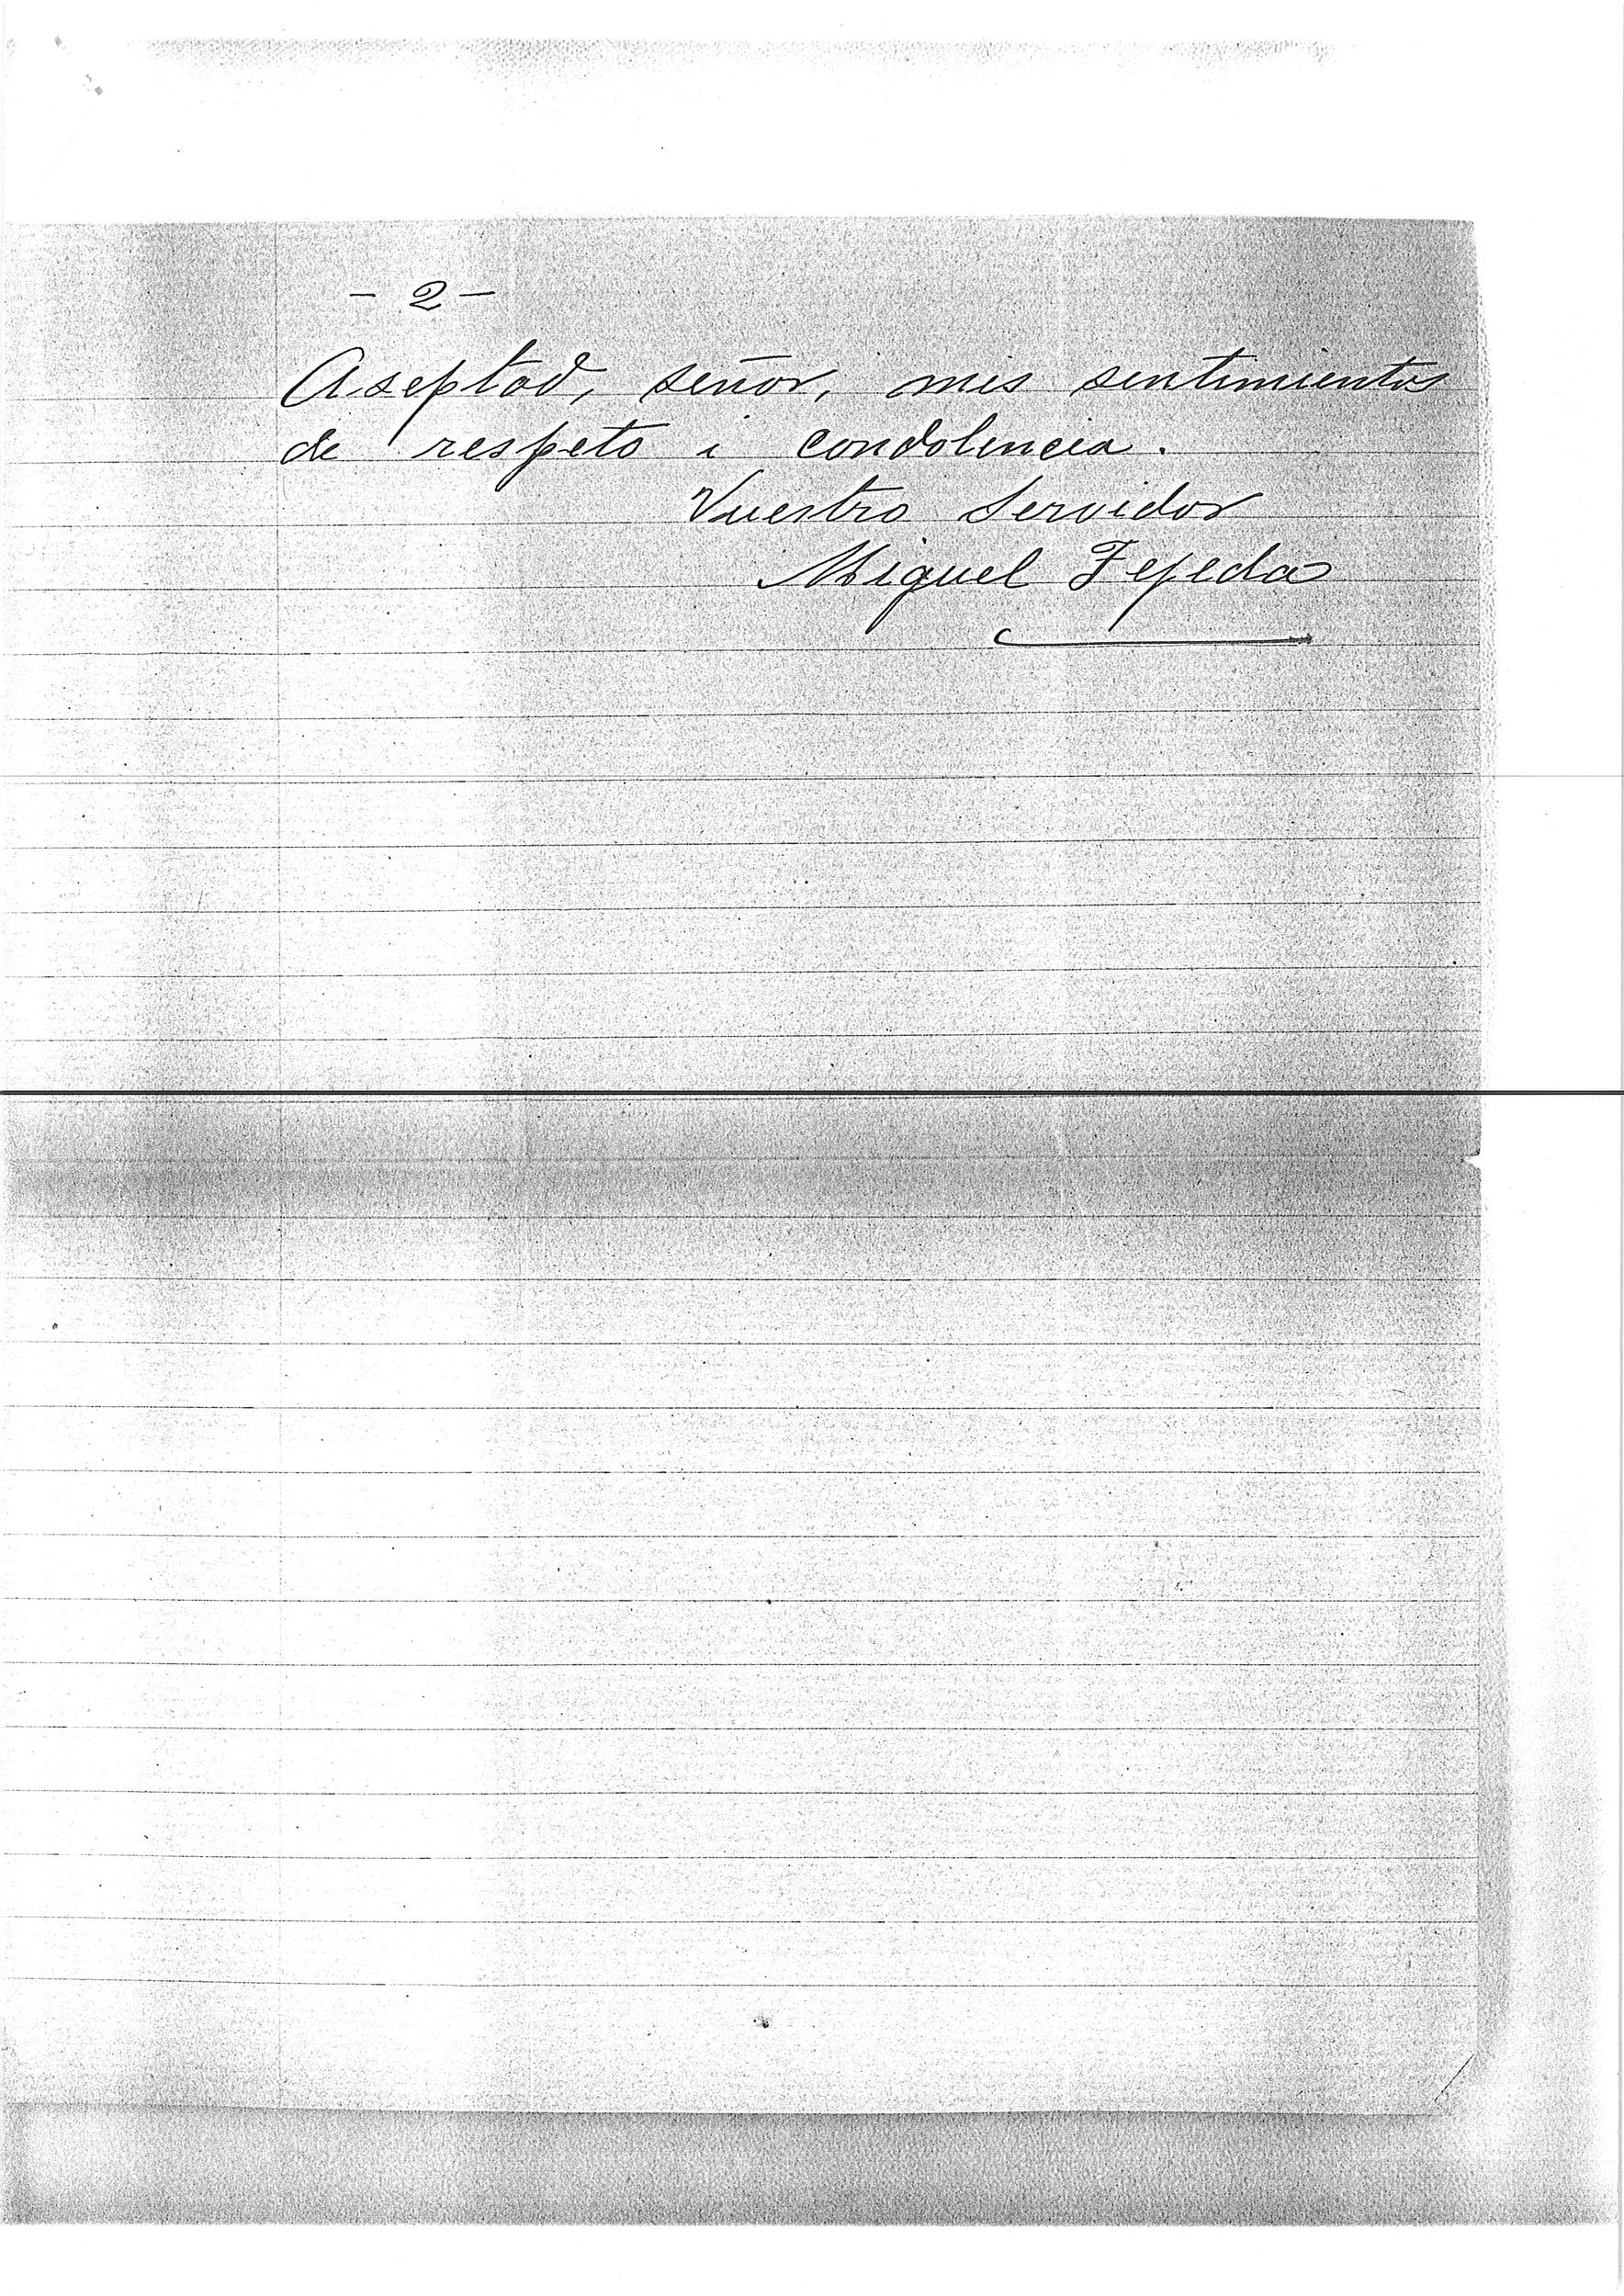 - 2 -
Aseptad, señor, mis sentimientos
de respeto i condolencia.
Vuestro Servidor
Miguel Tejeda